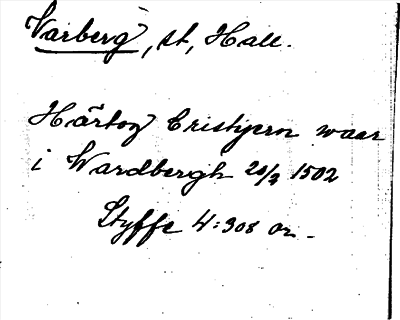 Varberg, st, Hall.
Härtog Cristjern waar
i Wardbergh 20/3 1502
Styffe 4:308 or.